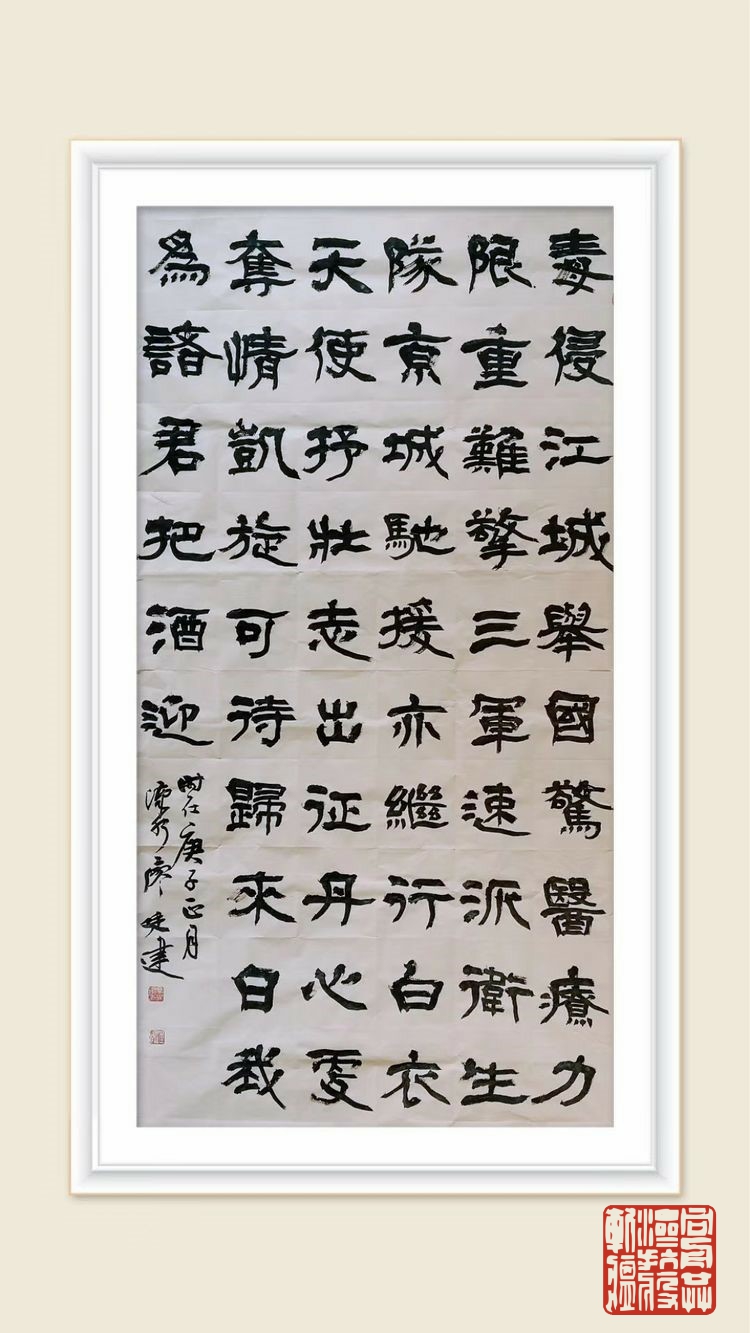 毒侵江城舉國驚醫療力
限重難擎三軍速派衛生
隊京城馳援亦繼行白衣
天使抒壯志出征丹心
奪情凱旋可待歸來日我
為諸君把酒迎
時在庚子正月
建